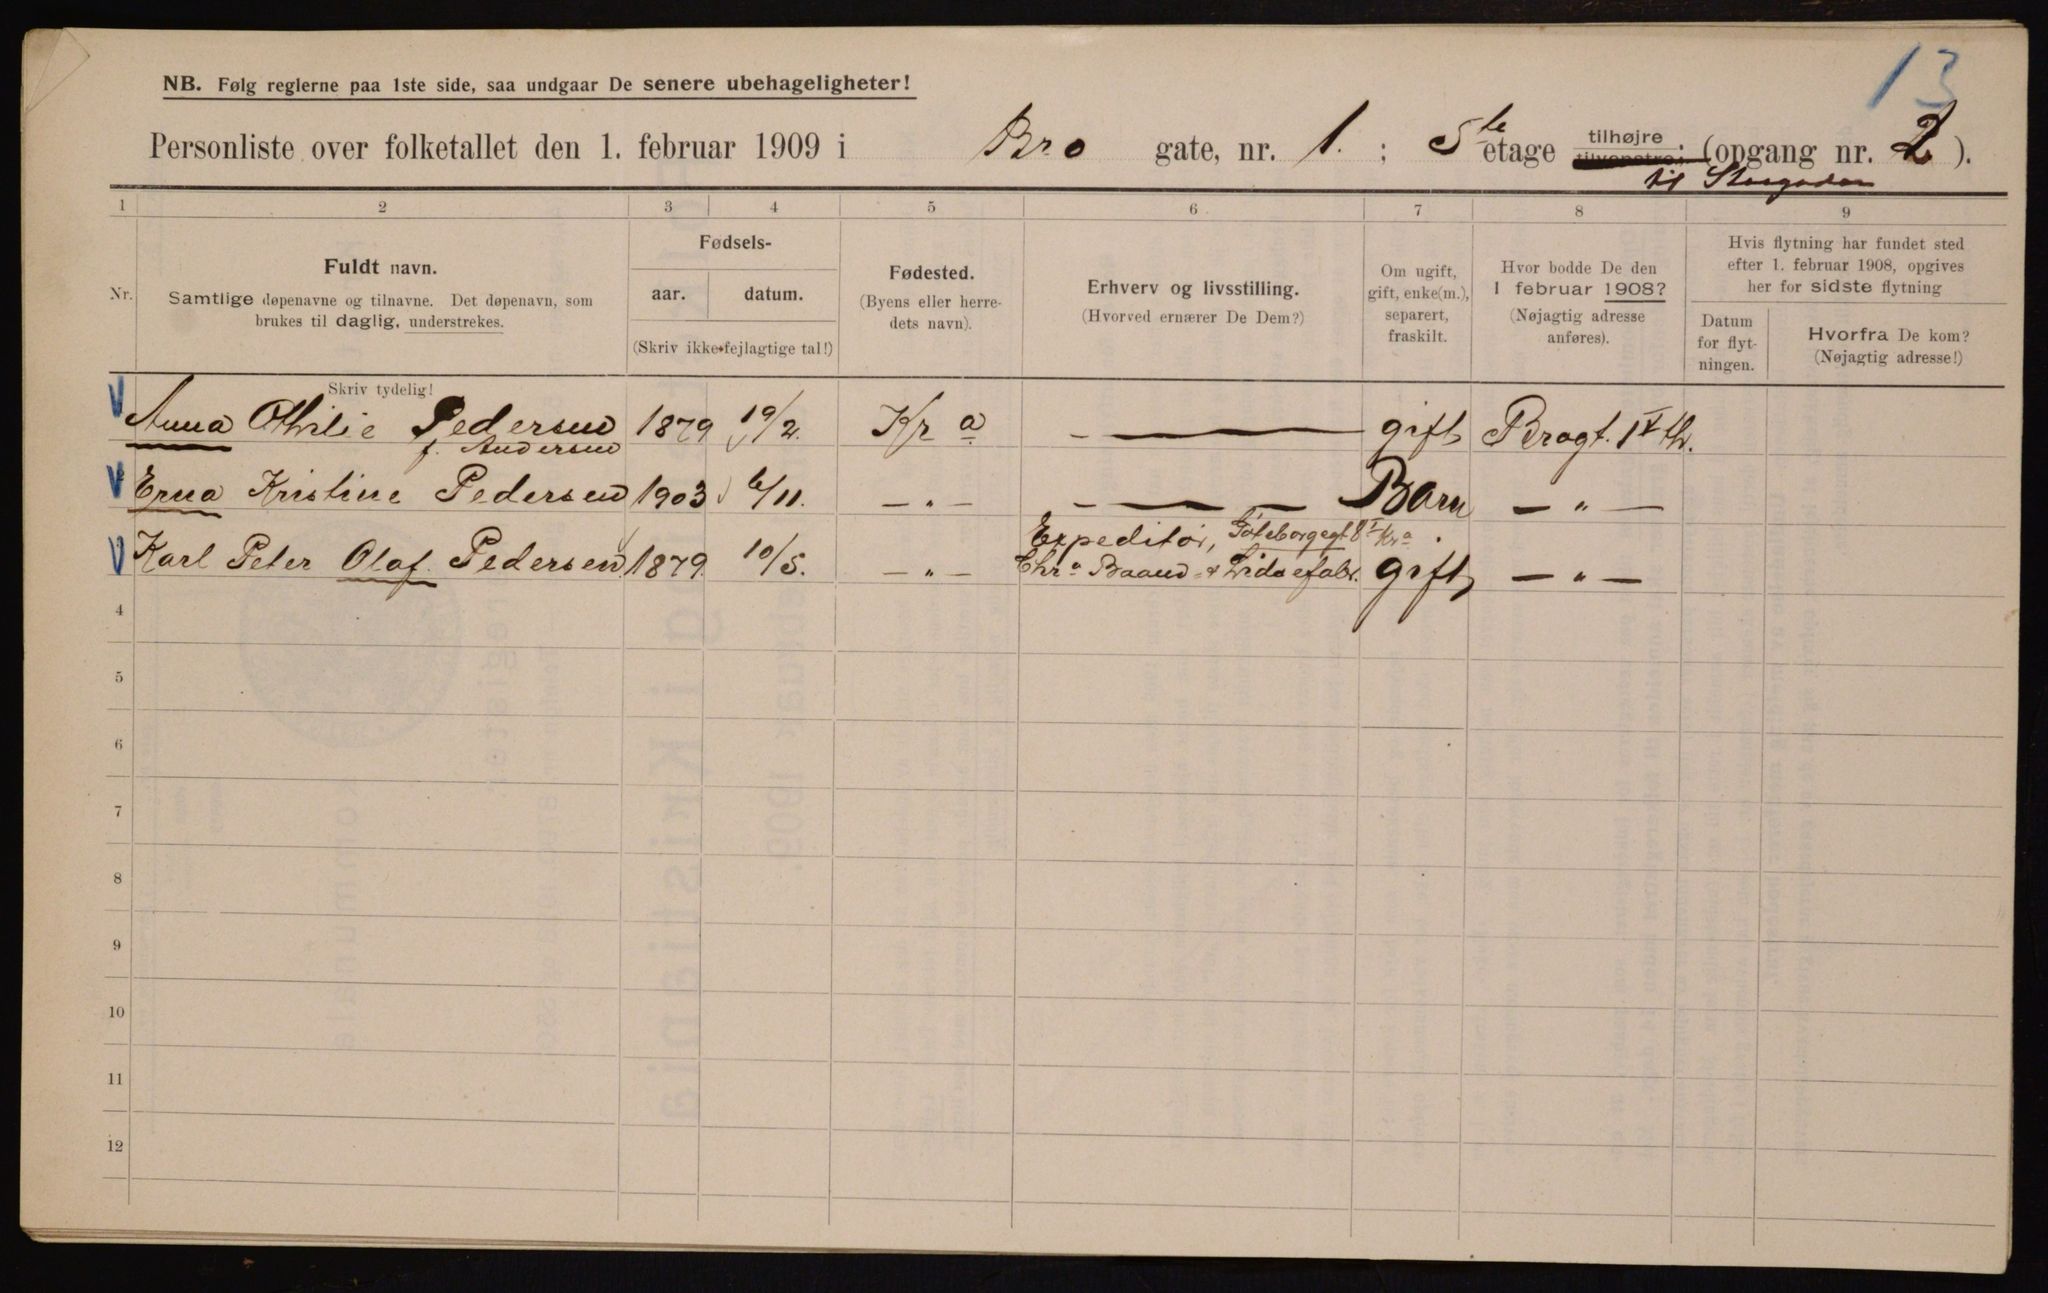 13
NB. Følg reglerne paa 1ste side, saa undgaar De senere ubehageligheter!
Personliste over folketallet den 1. februar 1909 i Bro gate, nr. 1. ; 5te etage tilhøjre tilvenstre; (opgang nr. 2).
til Storgaden
1 2 3 4 5 6 7 8 9
Nr.
Fuldt navn.
Samtlige døpenavne og tilnavne. Det døpenavn, som
brukes til daglig, understrekes.
Fødsels-
aar. datum.
(Skriv ikke fejlagtige tal!)
Fødested.
(Byens eller herre-
dets navn).
Erhverv og livsstilling.
(Hvorved ernærer De Dem?)
Om ugift,
gift, enke(m.),
separert,
fraskilt.
Hvor bodde De den
1 februar 1908?
(Nøjagtig adresse
anføres).
Hvis flytning har fundet sted
efter 1. februar 1908, opgives
her for sidste flytning
Datum
for flyt-
ningen.
Hvorfra De kom?
(Nøjagtig adresse!)
Skriv tydelig!
Anna Othilie Pedersen 1879 19/2. Kr a gift Brogt. 1 V th.
f. Andersen
Erna Kristine Pedersen 1903 6/11. — „ — Barn — „ —
Expeditør, Göteborggt 8 I Kra.
Karl Peter Olaf Pedersen 1879. 10/5. — „ — Chra Baand & Lidsefabr. gift — „ —
4
5
6
7
8
9
10
11
12